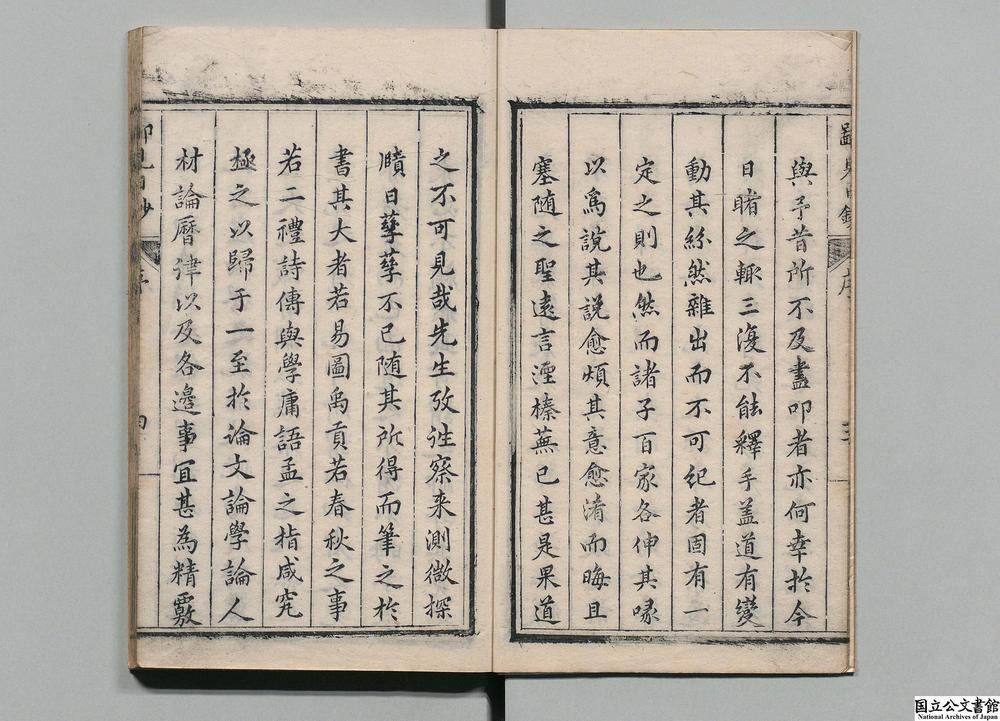 與予昔所不及盡叩者亦何幸扵今
日睹之輙三復不能釋手盖道有變
動其紛然雜出而不可紀者固有一
定之則也然而諸子百家各伸其喙
以爲說其說愈煩其意愈淆而晦且
塞随之聖遠言湮榛蕪已甚是果道
之不可見哉先生攷徃察来測微探
賾日孳孳不已随其所得而筆之扵
書其大者若易圖禹貢若春秋之事
若二禮詩傳與學庸語孟之指咸究
極之以歸于一至扵論文論學論人
材論曆律以及各邊事冝甚為精覈
序
国立公文書館
National Archives of Japan